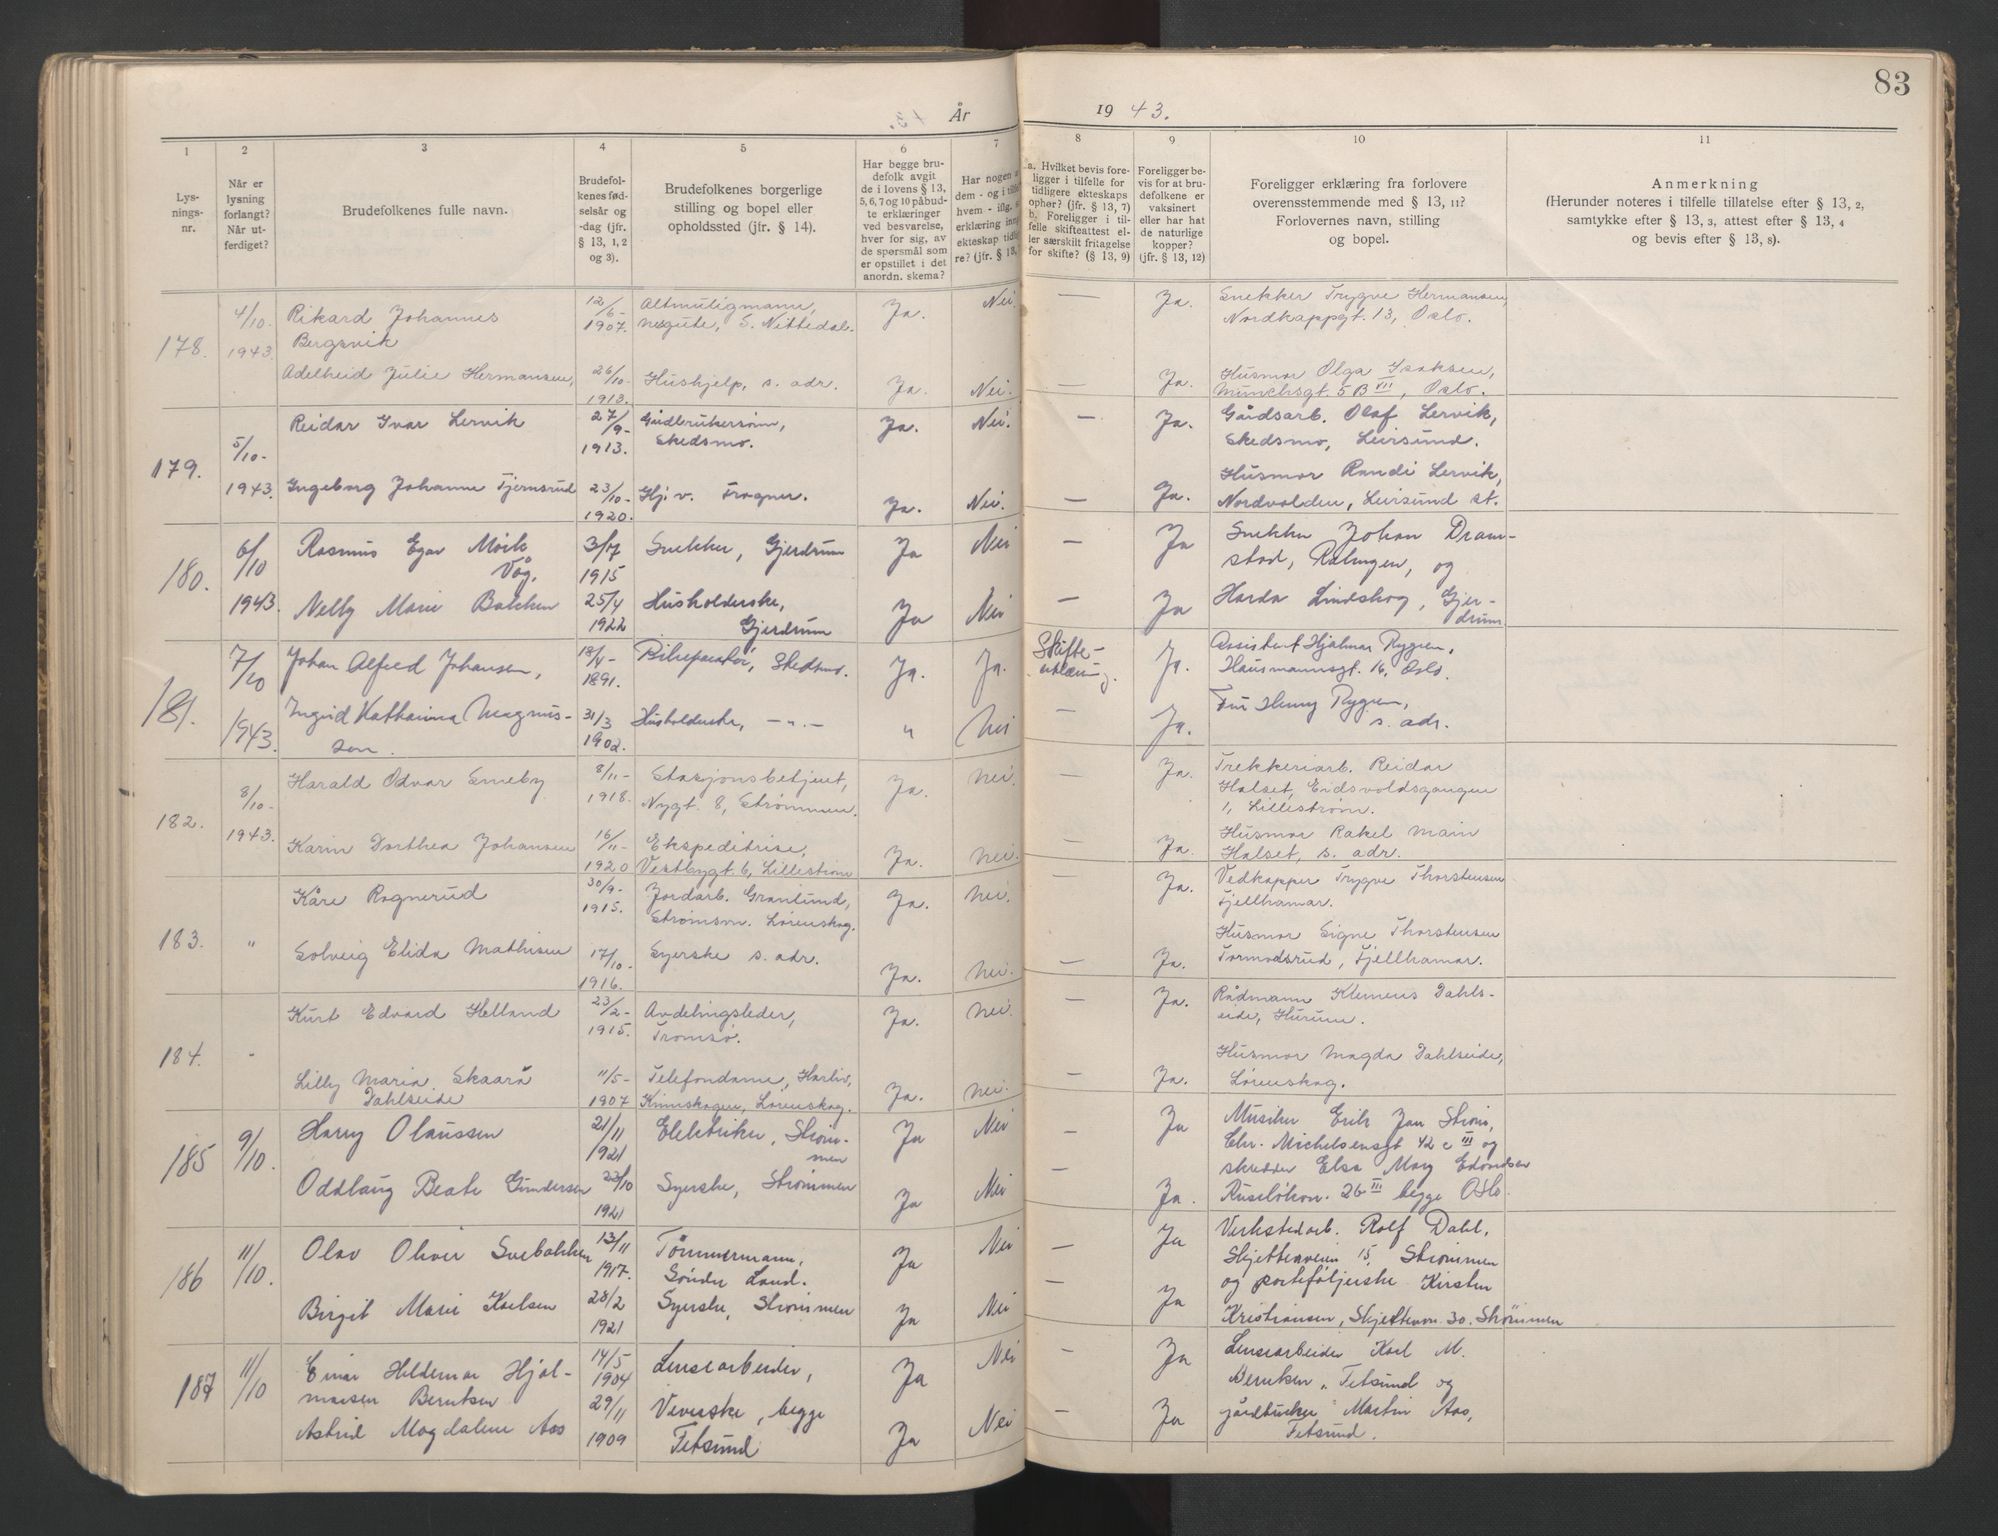 83
År 1943.
1 2 3 4 5 6 7 8 9 10 11
Lys-
nings-
nr.
Når er
lysning
forlangt?
Når ut-
ferdiget?
Brudefolkenes fulle navn.
Brudefol-
kenes fød-
selsår og
-dag (jfr.
§ 13, 1, 2
og 3).
Brudefolkenes borgerlige
stilling og bopel eller
opholdssted (jfr. § 14).
Har begge bru-
defolk avgit
de i lovens § 13,
5, 6, 7 og 10 påbud-
te erklæringer
ved besvarelse,
hver for sig, av
de spørsmål som
er opstillet i det
anordn. skema?
Har nogen a
dem - og i tilf
hvem - iflg. s
erklæring inng
ekteskap tidli
re? (jfr. § 13,
a. Hvilket bevis fore-
ligger i tilfelle for
tidligere ekteskaps
ophør? (jfr. § 13, 7)
b. Foreligger i til-
felle skifteattest el-
ler særskilt fritagelse
for skifte? (§ 13, 9)
Foreligger be-
vis for at bru-
defolkene er
vaksinert
eller har hat
de naturlige
kopper?
(jfr. § 13, 12)
Foreligger erklæring fra forlovere
overensstemmende med § 13, 11?
Forlovernes navn, stilling
og bopel.
Anmerkning
(Herunder noteres i tilfelle tillatelse efter § 13, 2,
samtykke efter § 13, 3, attest efter § 13, 4
og bevis efter § 13, 8).
178. 4/10. 1943. Rikard Johannes
Bergsvik 12/6- 1907. Altmuligmann,
S. Nittedal. Ja. Nei. — Ja. Snekker Trygve Hermansen,
Nordkappgt. 13, Oslo.
Adelheid Julie Hermansen, 26/10- 1913. Hushjelp, s. adr. Ja. Nei. — Ja. Husmor Olga Isaksen,
Munchsgt. 5 B VII, Oslo.
179. 5/10- 1943. Reidar Ivar Lervik 27/9- 1913. Gårdbrukersønn,
Skedsmo. Ja. Nei. — Ja. Gårdsarb. Olaf Lervik,
Skedsmo, Leirsund.
Ingeborg Johanne Tjernsrud 23/10- 1920. Hj. v. Frogner. Ja. Nei. — Ja. Husmor Randi Lervik,
Nordvolden, Leirsund st.
180. 6/10 1943. Rasmus Egar Mork
Våg. 3/7 1915 Snekker, Gjerdrum Ja Nei — Ja Snekker Johan Dram-
stad, Rælingen, og
Nelly Marie Bakken 25/4 1922 Husholderske,
Gjerdrum Ja Nei — Ja Harda Lindskog, Gjer-
drum
181. 7/10 1943. Johan Alfred Johansen, 18/4- 1891. Bilreparatør, Skedsmo. Ja. Ja. Skifte-
erklæring. Ja. Assistent Hjalmar Rygren,
Hausmannsgt. 16, Oslo.
Ingrid Katharina Magnus-
sen. 31/3 1902. Husholderske, — " — " Nei — Ja. Fru Henny Rygren,
s. adr.
182. 8/10- 1943. Harald Odvar Smeby 8/11- 1918. Stasjonsbetjent,
Nygt. 8, Strømmen. Ja. Nei. — Ja. Trekkeriarb. Reidar
Halset, Eidsvoldsgangen
1, Lillestrøm.
Karin Dorthea Johansen 16/11- 1920 Ekspeditrise,
Vestbygt. 6, Lillestrøm Ja. Nei. — Ja. Husmor Rakel Main
Halset, s. adr.
183. " Kåre Rognerud 30/9- 1915. Jordarb. Granlund,
Strømsvn. Lørenskog. Ja. Nei. — Ja. Vedkapper Trygve Thorstensen
Fjellhamar.
Solveig Elida Mathisen 17/10- 1916. Syerske s. adr. Ja. Nei. — Ja. Husmor Signe Thorstensen
Tormodsrud, Fjellhamar.
184. " Kurt Edvard Helland 23/2- 1915. Avdelingsleder,
Tromsø. Ja. Nei. — Ja. Rådmann Klemens Dahls-
eide, Hurum.
Lilly Maria Skaarå
Dahlseide 11/5- 1907 Telefondame, Harliv,
Kinnskogen, Lørenskog. Ja. Nei. — Ja. Husmor Magda Dahlseide,
Lørenskog.
185 9/10. Harry Olaussen 21/11 1921 Elektriker, Strøm-
men Ja Nei — Ja Musiker Erik Jan Strøm,
Chr. Michelsensgt 42 c III og
Oddlaug Beate Gundersen 23/10 1921 Syerske, Strømmen Ja Nei — Ja. skredder Elsa Mary Edvardsen
Ruseløkvn. 26 III begge Oslo.
186 11/10. Olav Oliver Svebakken 13/11 1917. Tømmermann,
Søndre Land. Ja Nei — Ja Verkstedarb. Rolf Dahl,
Skjetteveien 15, Strømmen
Birgit Marie Karlsen 28/2 1921 Syerske, Strømmen Ja Nei — Ja og porteføljerske Kirsten
Kristiansen, Skjettenvn. 30. Strømmen
187 11/10 Einar Heldemar Hjal-
marsen Berntsen 14/5 1904 Lensearbeider, Ja Nei Ja Lensearbeider Karl M.
Berntsen, Fetsund og
Astrid Magdalene Aas 29/11 1909 Veverske, begge
Fetsund Ja Nei — Ja gårdbruker Martin Aas,
Fetsund.